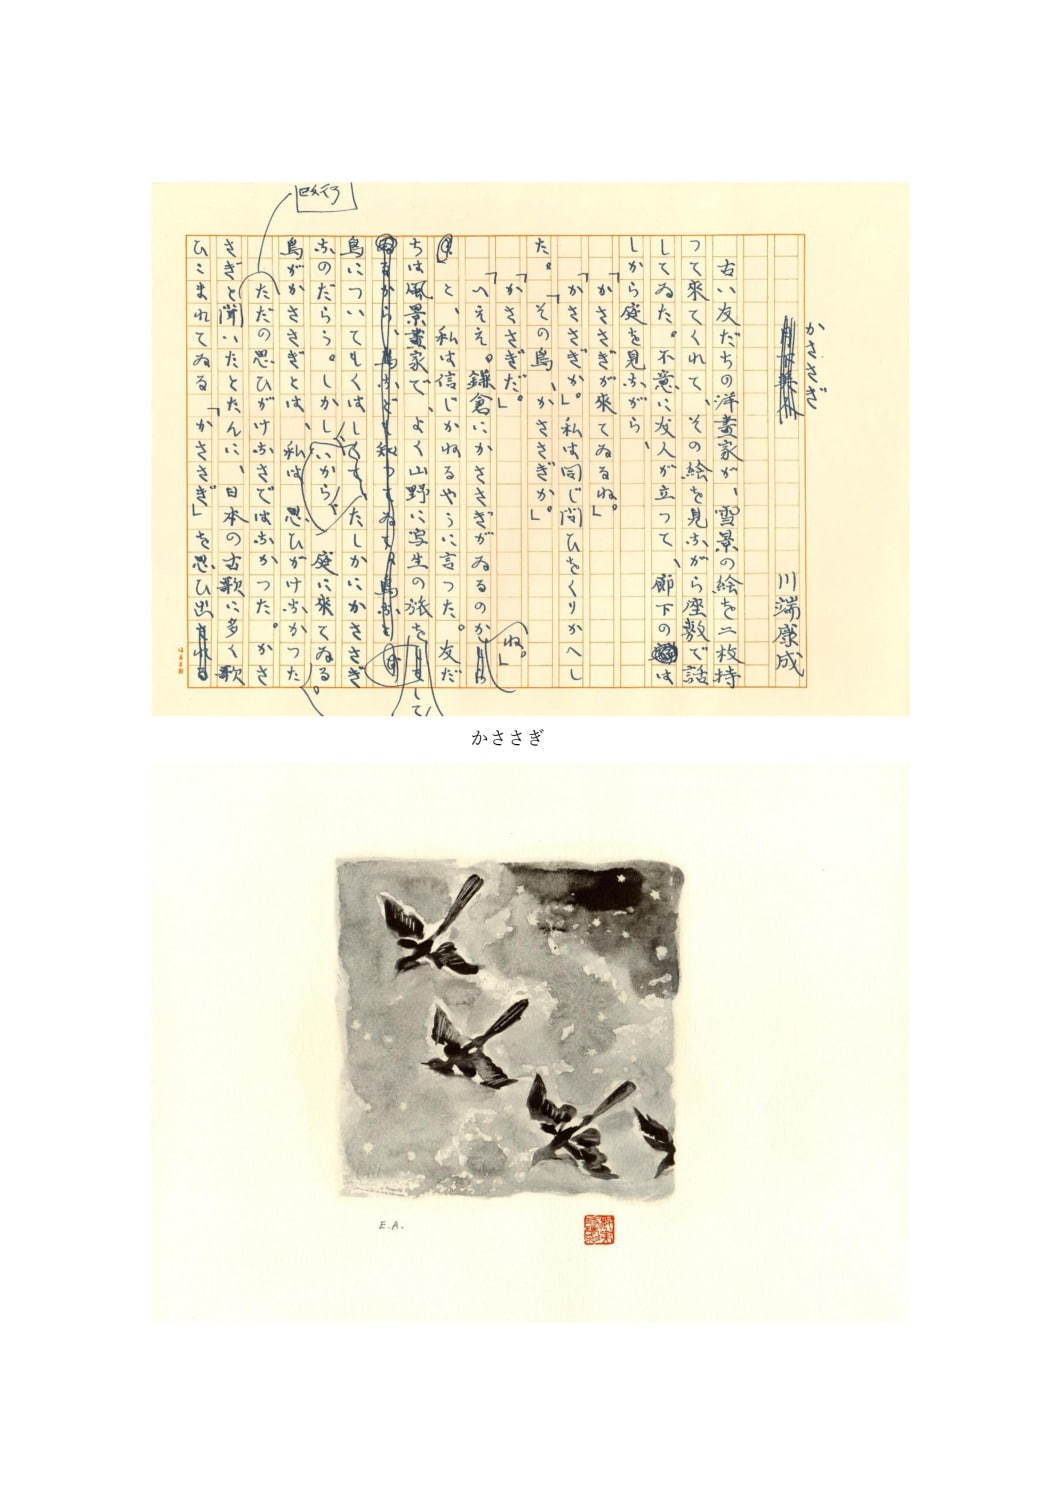 かささぎ
川端康成
古い友だちの洋畫家が、雪景の絵を二枚持
つて來てくれて、その絵を見ながら座敷で話
してゐた。不意に友人が立つて、廊下のは
しから庭を見ながら、
「かささぎが來てゐるね。」
「かささぎか。」私は同じ問ひをくりかへし
た。「その鳥、かささぎか。」
「かささぎだ。」
「へええ。鎌倉にかささぎがゐるのかね。」
と、私は信じかねるやうに言つた。友だ
ちは風景畫家で、よく山野に写生の旅をして
鳥についてもくはしいから、たしかにかささぎ
なのだらう。しかし庭に來てゐる
鳥がかささぎとは、私は思ひがけなかつた。
改行
ただの思ひがけなさではなかつた。かさ
さぎと聞いたとたんに、日本の古歌に多く歌
ひこまれてゐる「かささぎ」を思ひ出
かささぎ
E.A.